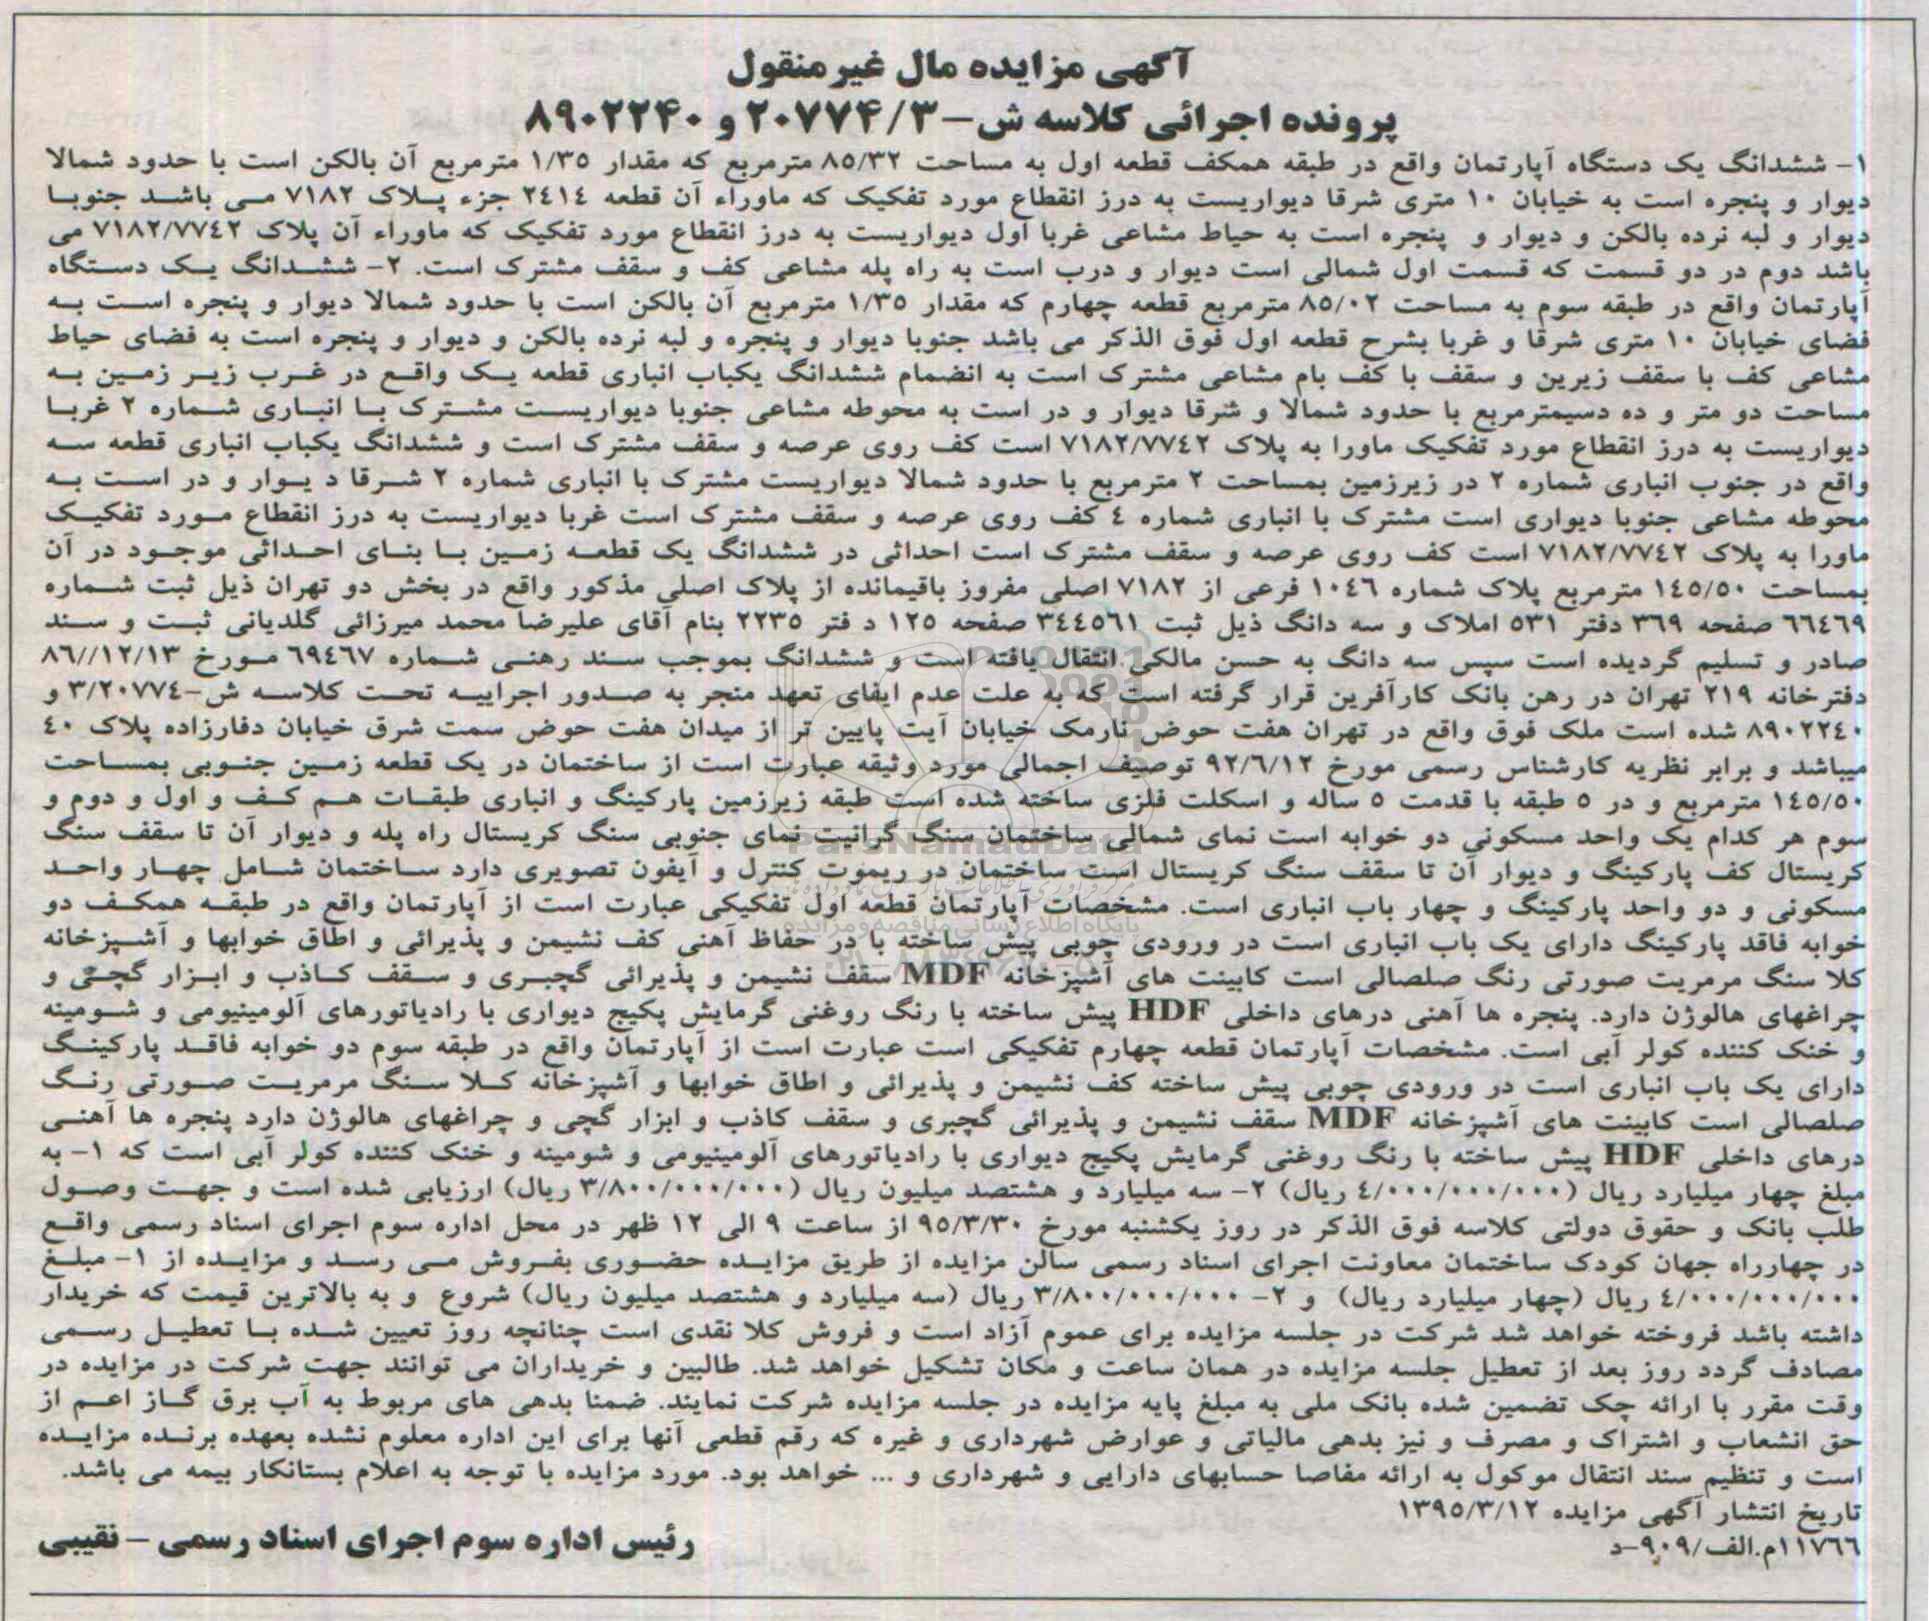 آگهی مزایده مال غیرمنقول
پرونده اجرائی کلاسه ش-۲۰۷۷۴/۳ و ۸۹۰۲۲۴۰
۱- ششدانگ یک دستگاه آپارتمان واقع در طبقه همکف قطعه اول به مساحت ۸۵/۳۲ مترمربع که مقدار ۱/۳۵ مترمربع آن بالکن است با حدود شمالا
دیوار و پنجره است به خیابان ۱۰ متری شرقا دیواریست به درز انقطاع مورد تفکیک که ماوراء آن قطعه ۲۴۱۴ جزء پلاک ۷۱۸۲ می باشد جنوبا
دیوار و لبه نرده بالکن و دیوار و پنجره است به حیاط مشاعی غربا اول دیواریست به درز انقطاع مورد تفکیک که ماوراء آن پلاک ۷۱۸۲/۷۷۴۲ می
باشد دوم در دو قسمت که قسمت اول شمالی است دیوار و درب است به راه پله مشاعی کف و سقف مشترک است. ۲- ششدانگ یک دستگاه
آپارتمان واقع در طبقه سوم به مساحت ۸۵/۰۲ مترمربع قطعه چهارم که مقدار ۱/۳۵ مترمربع آن بالکن است با حدود شمالا دیوار و پنجره است به
فضای خیابان ۱۰ متری شرقا و غربا بشرح قطعه اول فوق الذکر می باشد جنوبا دیوار و پنجره و لبه نرده بالکن و دیوار و پنجره است به فضای حیاط
مشاعی کف با سقف زیرین و سقف با کف بام مشاعی مشترک است به انضمام ششدانگ یکباب انباری قطعه یک واقع در غرب زیر زمین به
مساحت دو متر و ده دسیمترمربع با حدود شمالا و شرقا دیوار و در است به محوطه مشاعی جنوبا دیواریست مشترک با انباری شماره ۲ غربا
دیواریست به درز انقطاع مورد تفکیک ماورا به پلاک ۷۱۸۲/۷۷۴۲ است کف روی عرصه و سقف مشترک است و ششدانگ یکباب انباری قطعه سه
واقع در جنوب انباری شماره ۲ در زیرزمین بمساحت ۲ مترمربع با حدود شمالا دیواریست مشترک با انباری شماره ۲ شرقا د یوار و در است به
محوطه مشاعی جنوبا دیواری است مشترک با انباری شماره ۴ کف روی عرصه و سقف مشترک است غربا دیواریست به درز انقطاع مورد تفکیک
ماورا به پلاک ۷۱۸۲/۷۷۴۲ است کف روی عرصه و سقف مشترک است احداثی در ششدانگ یک قطعه زمین با بنای احداثی موجود در آن
بمساحت ۱۴۵/۵۰ مترمربع پلاک شماره ۱۰۴۶ فرعی از ۷۱۸۲ اصلی مفروز باقیمانده از پلاک اصلی مذکور واقع در بخش دو تهران ذیل ثبت شماره
۶۶۴۶۹ صفحه ۳۶۹ دفتر ۵۳۱ املاک و سه دانگ ذیل ثبت ۳۴۴۵۶۱ صفحه ۱۲۵ د فتر ۲۲۳۵ بنام آقای علیرضا محمد میرزائی گلدیانی ثبت و سند
صادر و تسلیم گردیده است سپس سه دانگ به حسن مالکی انتقال یافته است و ششدانگ بموجب سند رهنی شماره ۶۹۴۶۷ مورخ ۸۶//۱۲/۱۳
دفترخانه ۲۱۹ تهران در رهن بانک کارآفرین قرار گرفته است که به علت عدم ایفای تعهد منجر به صدور اجراییه تحت کلاسه ش-۳/۲۰۷۷۴ و
۸۹۰۲۲۴۰ شده است ملک فوق واقع در تهران هفت حوض نارمک خیابان آیت پایین تر از میدان هفت حوض سمت شرق خیابان دفارزاده پلاک ۴۰
میباشد و برابر نظریه کارشناس رسمی مورخ ۹۲/۶/۱۲ توصیف اجمالی مورد وثیقه عبارت است از ساختمان در یک قطعه زمین جنوبی بمساحت
۱۴۵/۵۰ مترمربع و در ۵ طبقه با قدمت ۵ ساله و اسکلت فلزی ساخته شده است طبقه زیرزمین پارکینگ و انباری طبقات هم کف و اول و دوم و
سوم هر کدام یک واحد مسکونی دو خوابه است نمای شمالی ساختمان سنگ گرانیت نمای جنوبی سنگ کریستال راه پله و دیوار آن تا سقف سنگ
کریستال کف پارکینگ و دیوار آن تا سقف سنگ کریستال است ساختمان در ریموت کنترل و آیفون تصویری دارد ساختمان شامل چهار واحد
مسکونی و دو واحد پارکینگ و چهار باب انباری است. مشخصات آپارتمان قطعه اول تفکیکی عبارت است از آپارتمان واقع در طبقه همکف دو
خوابه فاقد پارکینگ دارای یک باب انباری است در ورودی چوبی پیش ساخته با در حفاظ آهنی کف نشیمن و پذیرائی و اطاق خوابها و آشپزخانه
کلا سنگ مرمریت صورتی رنگ صلصالی است کابینت های آشپزخانه MDF سقف نشیمن و پذیرائی گچبری و سقف کاذب و ابزار گچی و
چراغهای هالوژن دارد. پنجره ها آهنی درهای داخلی HDF پیش ساخته با رنگ روغنی گرمایش پکیج دیواری با رادیاتورهای آلومینیومی و شومینه
و خنک کننده کولر آبی است. مشخصات آپارتمان قطعه چهارم تفکیکی است عبارت است از آپارتمان واقع در طبقه سوم دو خوابه فاقد پارکینگ
دارای یک باب انباری است در ورودی چوبی پیش ساخته کف نشیمن و پذیرائی و اطاق خوابها و آشپزخانه کلا سنگ مرمریت صورتی رنگ
صلصالی است کابینت های آشپزخانه MDF سقف نشیمن و پذیرائی گچبری و سقف کاذب و ابزار گچی و چراغهای هالوژن دارد پنجره ها آهنی
درهای داخلی HDF پیش ساخته با رنگ روغنی گرمایش پکیج دیواری با رادیاتورهای آلومینیومی و شومینه و خنک کننده کولر آبی است که ۱- به
مبلغ چهار میلیارد ریال (۴/۰۰۰/۰۰۰/۰۰۰ ریال) ۲- سه میلیارد و هشتصد میلیون ریال (۳/۸۰۰/۰۰۰/۰۰۰ ریال) ارزیابی شده است و جهت وصول
طلب بانک و حقوق دولتی کلاسه فوق الذکر در روز یکشنبه مورخ ۹۵/۳/۳۰ از ساعت ۹ الی ۱۲ ظهر در محل اداره سوم اجرای اسناد رسمی واقع
در چهارراه جهان کودک ساختمان معاونت اجرای اسناد رسمی سالن مزایده از طریق مزایده حضوری بفروش می رسد و مزایده از ۱- مبلغ
۴/۰۰۰/۰۰۰/۰۰۰ ریال (چهار میلیارد ریال) و ۲- ۳/۸۰۰/۰۰۰/۰۰۰ ریال (سه میلیارد و هشتصد میلیون ریال) شروع و به بالاترین قیمت که خریدار
داشته باشد فروخته خواهد شد شرکت در جلسه مزایده برای عموم آزاد است و فروش کلا نقدی است چنانچه روز تعیین شده با تعطیل رسمی
مصادف گردد روز بعد از تعطیل جلسه مزایده در همان ساعت و مکان تشکیل خواهد شد. طالبین و خریداران می توانند جهت شرکت در مزایده در
وقت مقرر با ارائه چک تضمین شده بانک ملی به مبلغ پایه مزایده در جلسه مزایده شرکت نمایند. ضمنا بدهی های مربوط به آب برق گاز اعم از
حق انشعاب و اشتراک و مصرف و نیز بدهی مالیاتی و عوارض شهرداری و غیره که رقم قطعی آنها برای این اداره معلوم نشده بعهده برنده مزایده
است و تنظیم سند انتقال موکول به ارائه مفاصا حسابهای دارایی و شهرداری و ... خواهد بود. مورد مزایده با توجه به اعلام بستانکار بیمه می باشد.
تاریخ انتشار آگهی مزایده ۱۳۹۵/۳/۱۲
۱۱۷۶۶م.الف/۹۰۹-د
رئیس اداره سوم اجرای اسناد رسمی - نقیبی
ParsNamadData
پایگاه اطلاع رسانی مناقصه و مزایده